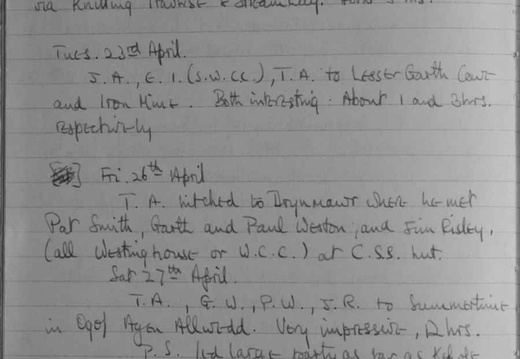 via Knitting Traverse & Streamway.
Tues. 23rd April.
J.A., E.I. (S.W.CC.), T.A. to Lesser Garth Cave
and Iron Mine. Both interesting. About 1 and 3hrs.
respectively
Fri. 26th April
T.A. hitched to Brynmawr where he met
Pat Smith, Garth and Paul Weston, and Jim Risley,
(all Westinghouse or W.C.C.) at C.S.S. hut.
Sat 27th April.
T.A., G.W., P.W., J.R. to Summertime
in Ogof Agen Allwedd. Very impressive, 12hrs.
P.S. led large party as far as